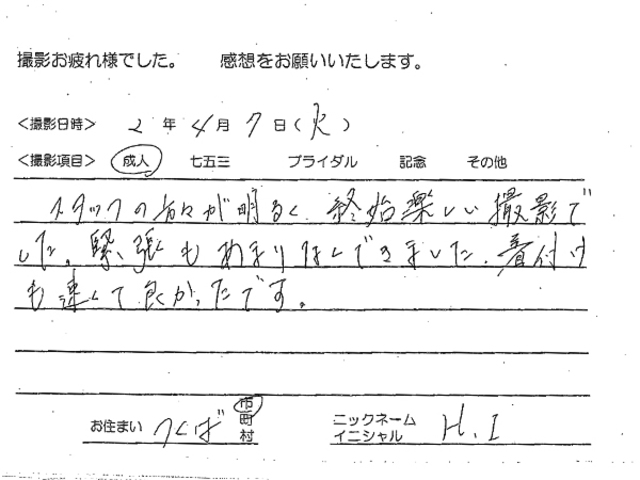 撮影お疲れ様でした。 感想をお願いいたします。
<撮影日時> 2 年 4 月 7 日(火)
<撮影項目> 成人 七五三 ブライダル 記念 その他
スタッフの方々が明るく、終始楽しい撮影で
した。緊張もあまりなくできました。着付け
も速くて良かったです。
お住まい つくば 市町村 ニックネーム イニシャル H.I